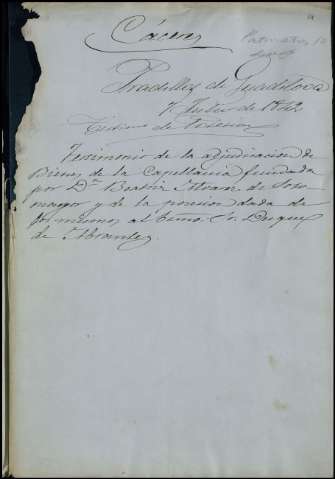 Cáceres
Pradilla de Guadiloba
7 Julio de 1842
Testimonio de Posesion
Testimonio de la adjudicacion de
Bienes de la Capellania fundada
por Dª Beatriz Alvarez de Soto
mayor y de la posesion dada de
los mismos al Exmo. Sr. Duque
de Abrantes